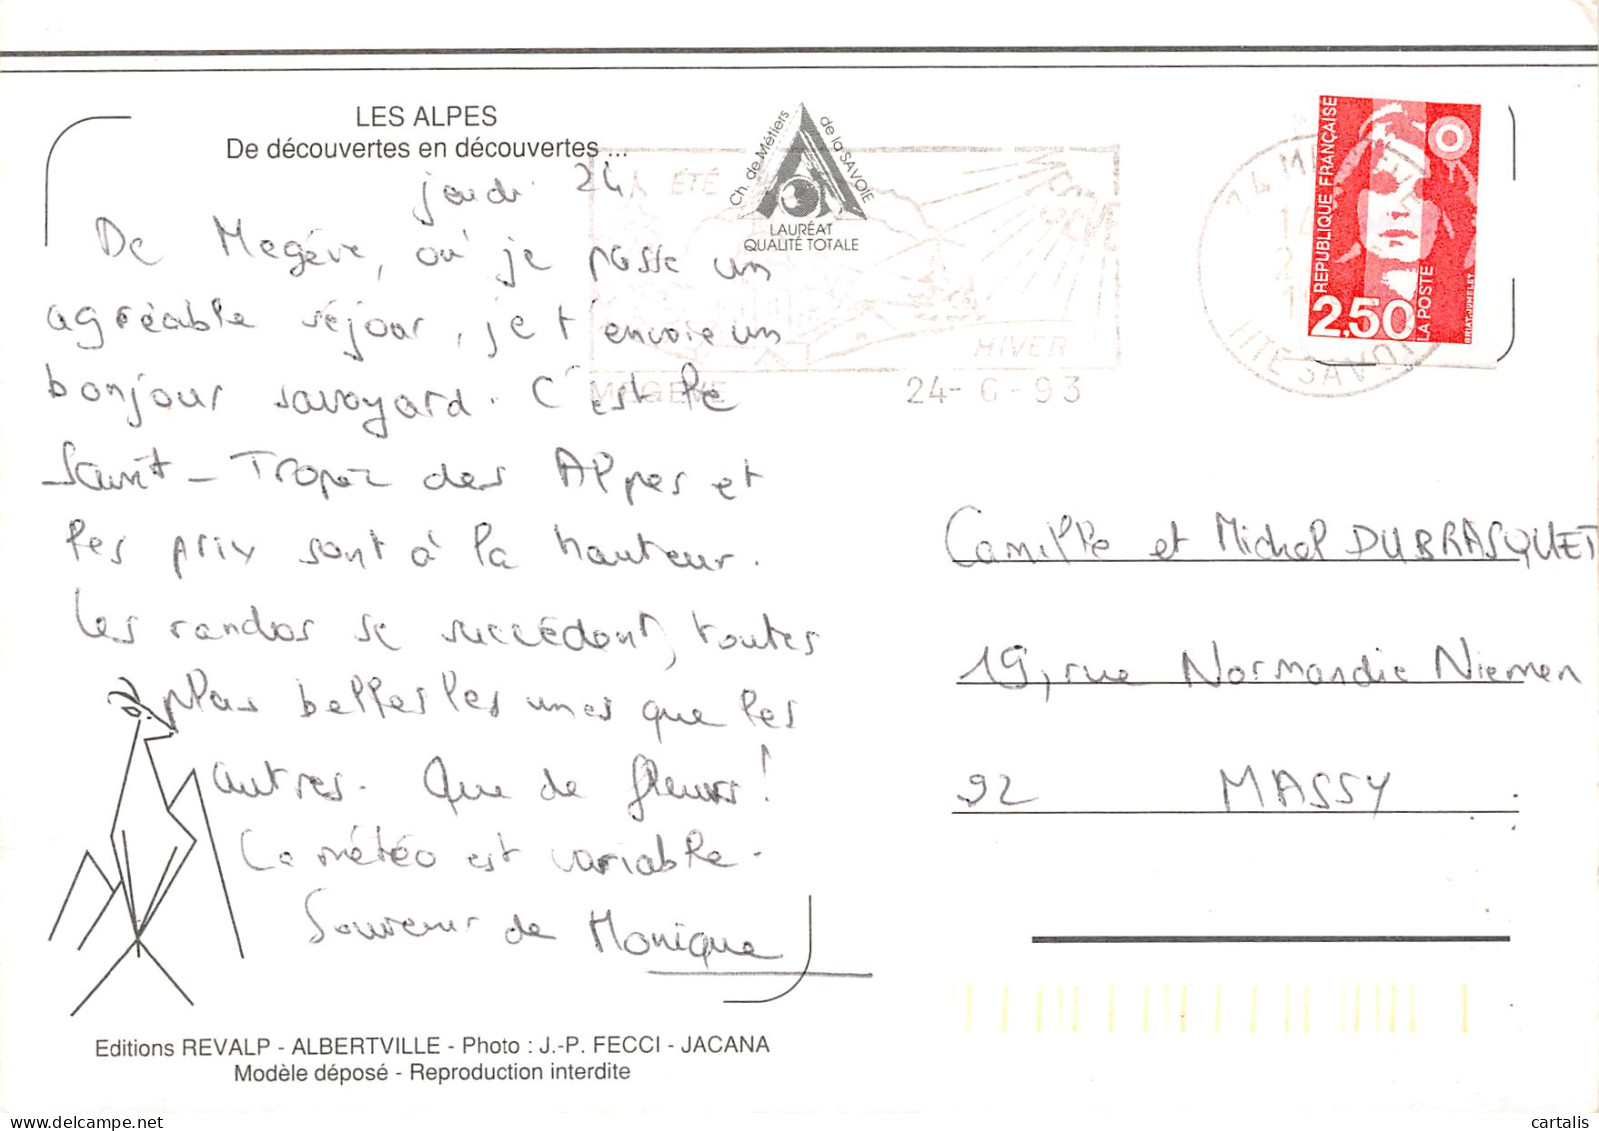 LES ALPES
De découvertes en découvertes ...
Ch. de Métiers de la SAVOIE
LAURÉAT
QUALITÉ TOTALE
ÉTÉ
HIVER
MEGEVE
24-6-93
74 MEGEVE
HTE SAVOIE
REPUBLIQUE FRANÇAISE
2,50
LA POSTE
BRIAT-JUMELET
jeudi 24
De Megève, où je passe un
agréable séjour, je t'envoie un
bonjour savoyard. C'est le
Saint-Tropez des Alpes et
les prix sont à la hauteur.
Les randos se succèdent, toutes
plus belles les unes que les
autres. Que de fleurs!
La météo est variable.
Souvenir de Monique
Camille et Michel DUBRASQUET
19, rue Normandie Niemen
92 MASSY
Editions REVALP - ALBERTVILLE - Photo : J.-P. FECCI - JACANA
Modèle déposé - Reproduction interdite
cartalis